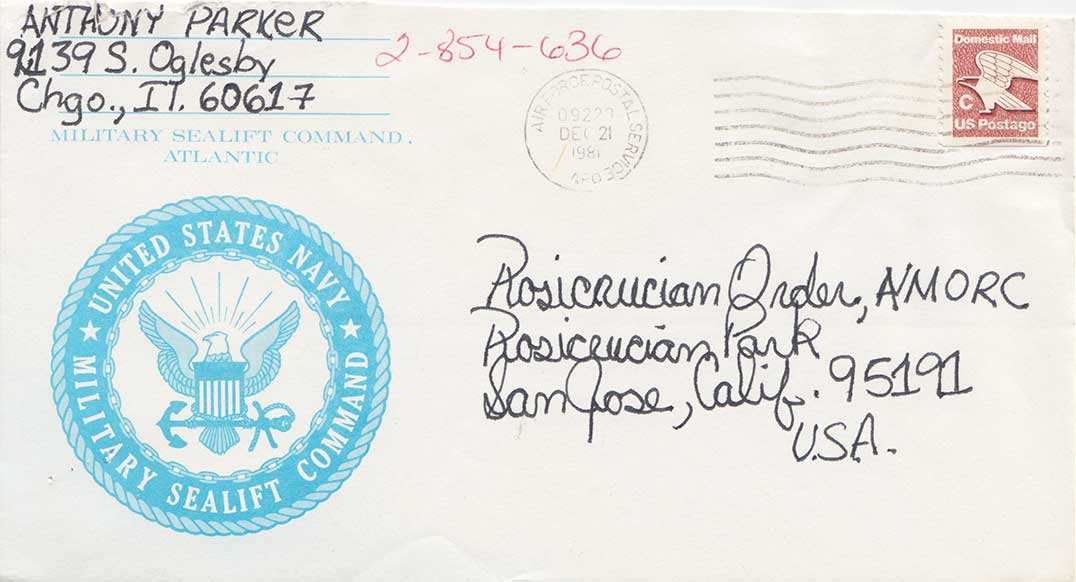 ANTHONY PARKER
9139 S. Oglesby
Chgo., IL. 60617
2-854-636
MILITARY SEALIFT COMMAND,
ATLANTIC
AIR FORCE POSTAL SERVICE
DEC 21
1981
APO
Domestic Mail
C
US Postage
UNITED STATES NAVY
MILITARY SEALIFT COMMAND
Rosicrucian Order, AMORC
Rosicrucian Park
San Jose, Calif. 95191
U.S.A.